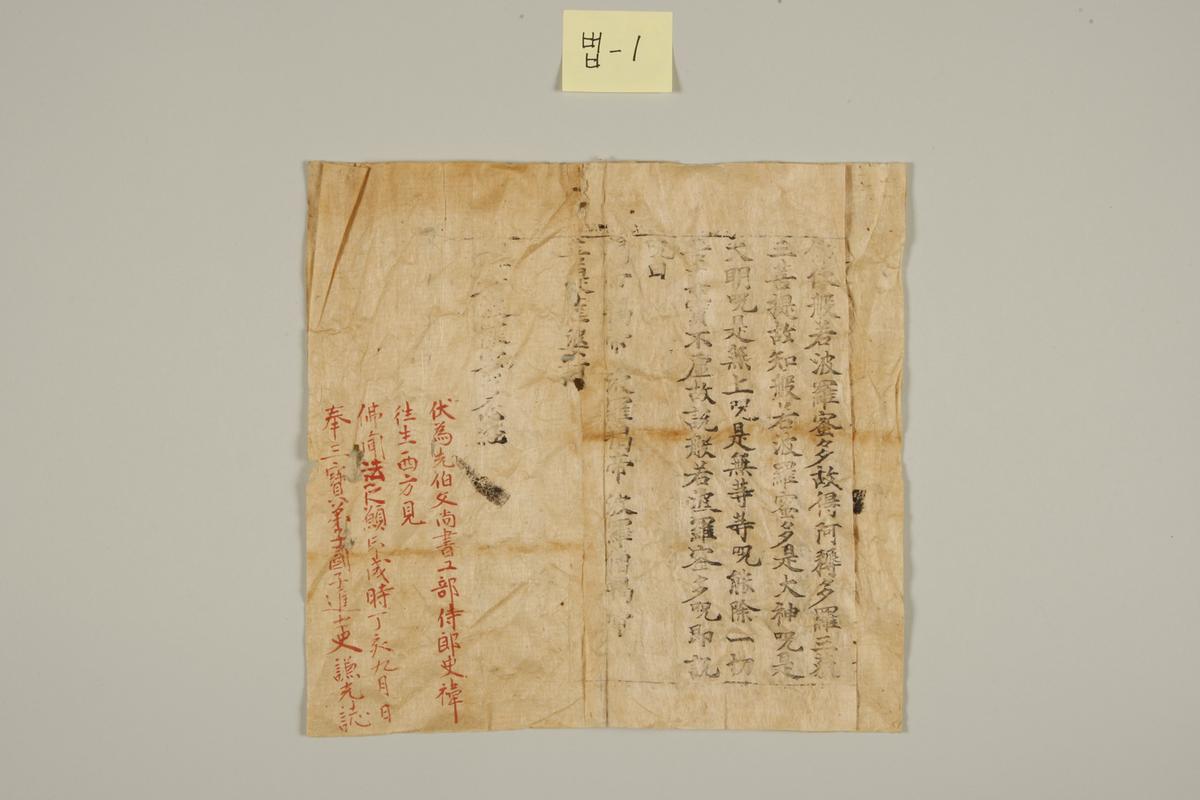 법-1
依般若波羅蜜多故得阿耨多羅三藐
三菩提故知般若波羅蜜多是大神呪是
大明呪是無上呪是無等等呪能除一切
實不虛故說般若波羅蜜多呪即說
呪曰
帝 波羅揭帝 波羅僧揭帝
菩提薩婆訶
心經
伏為先伯父尚書工部侍郎史褘
往生西方見
佛聞法之願 歲時丁亥九月日
奉三寶 國子進士史謙光誌